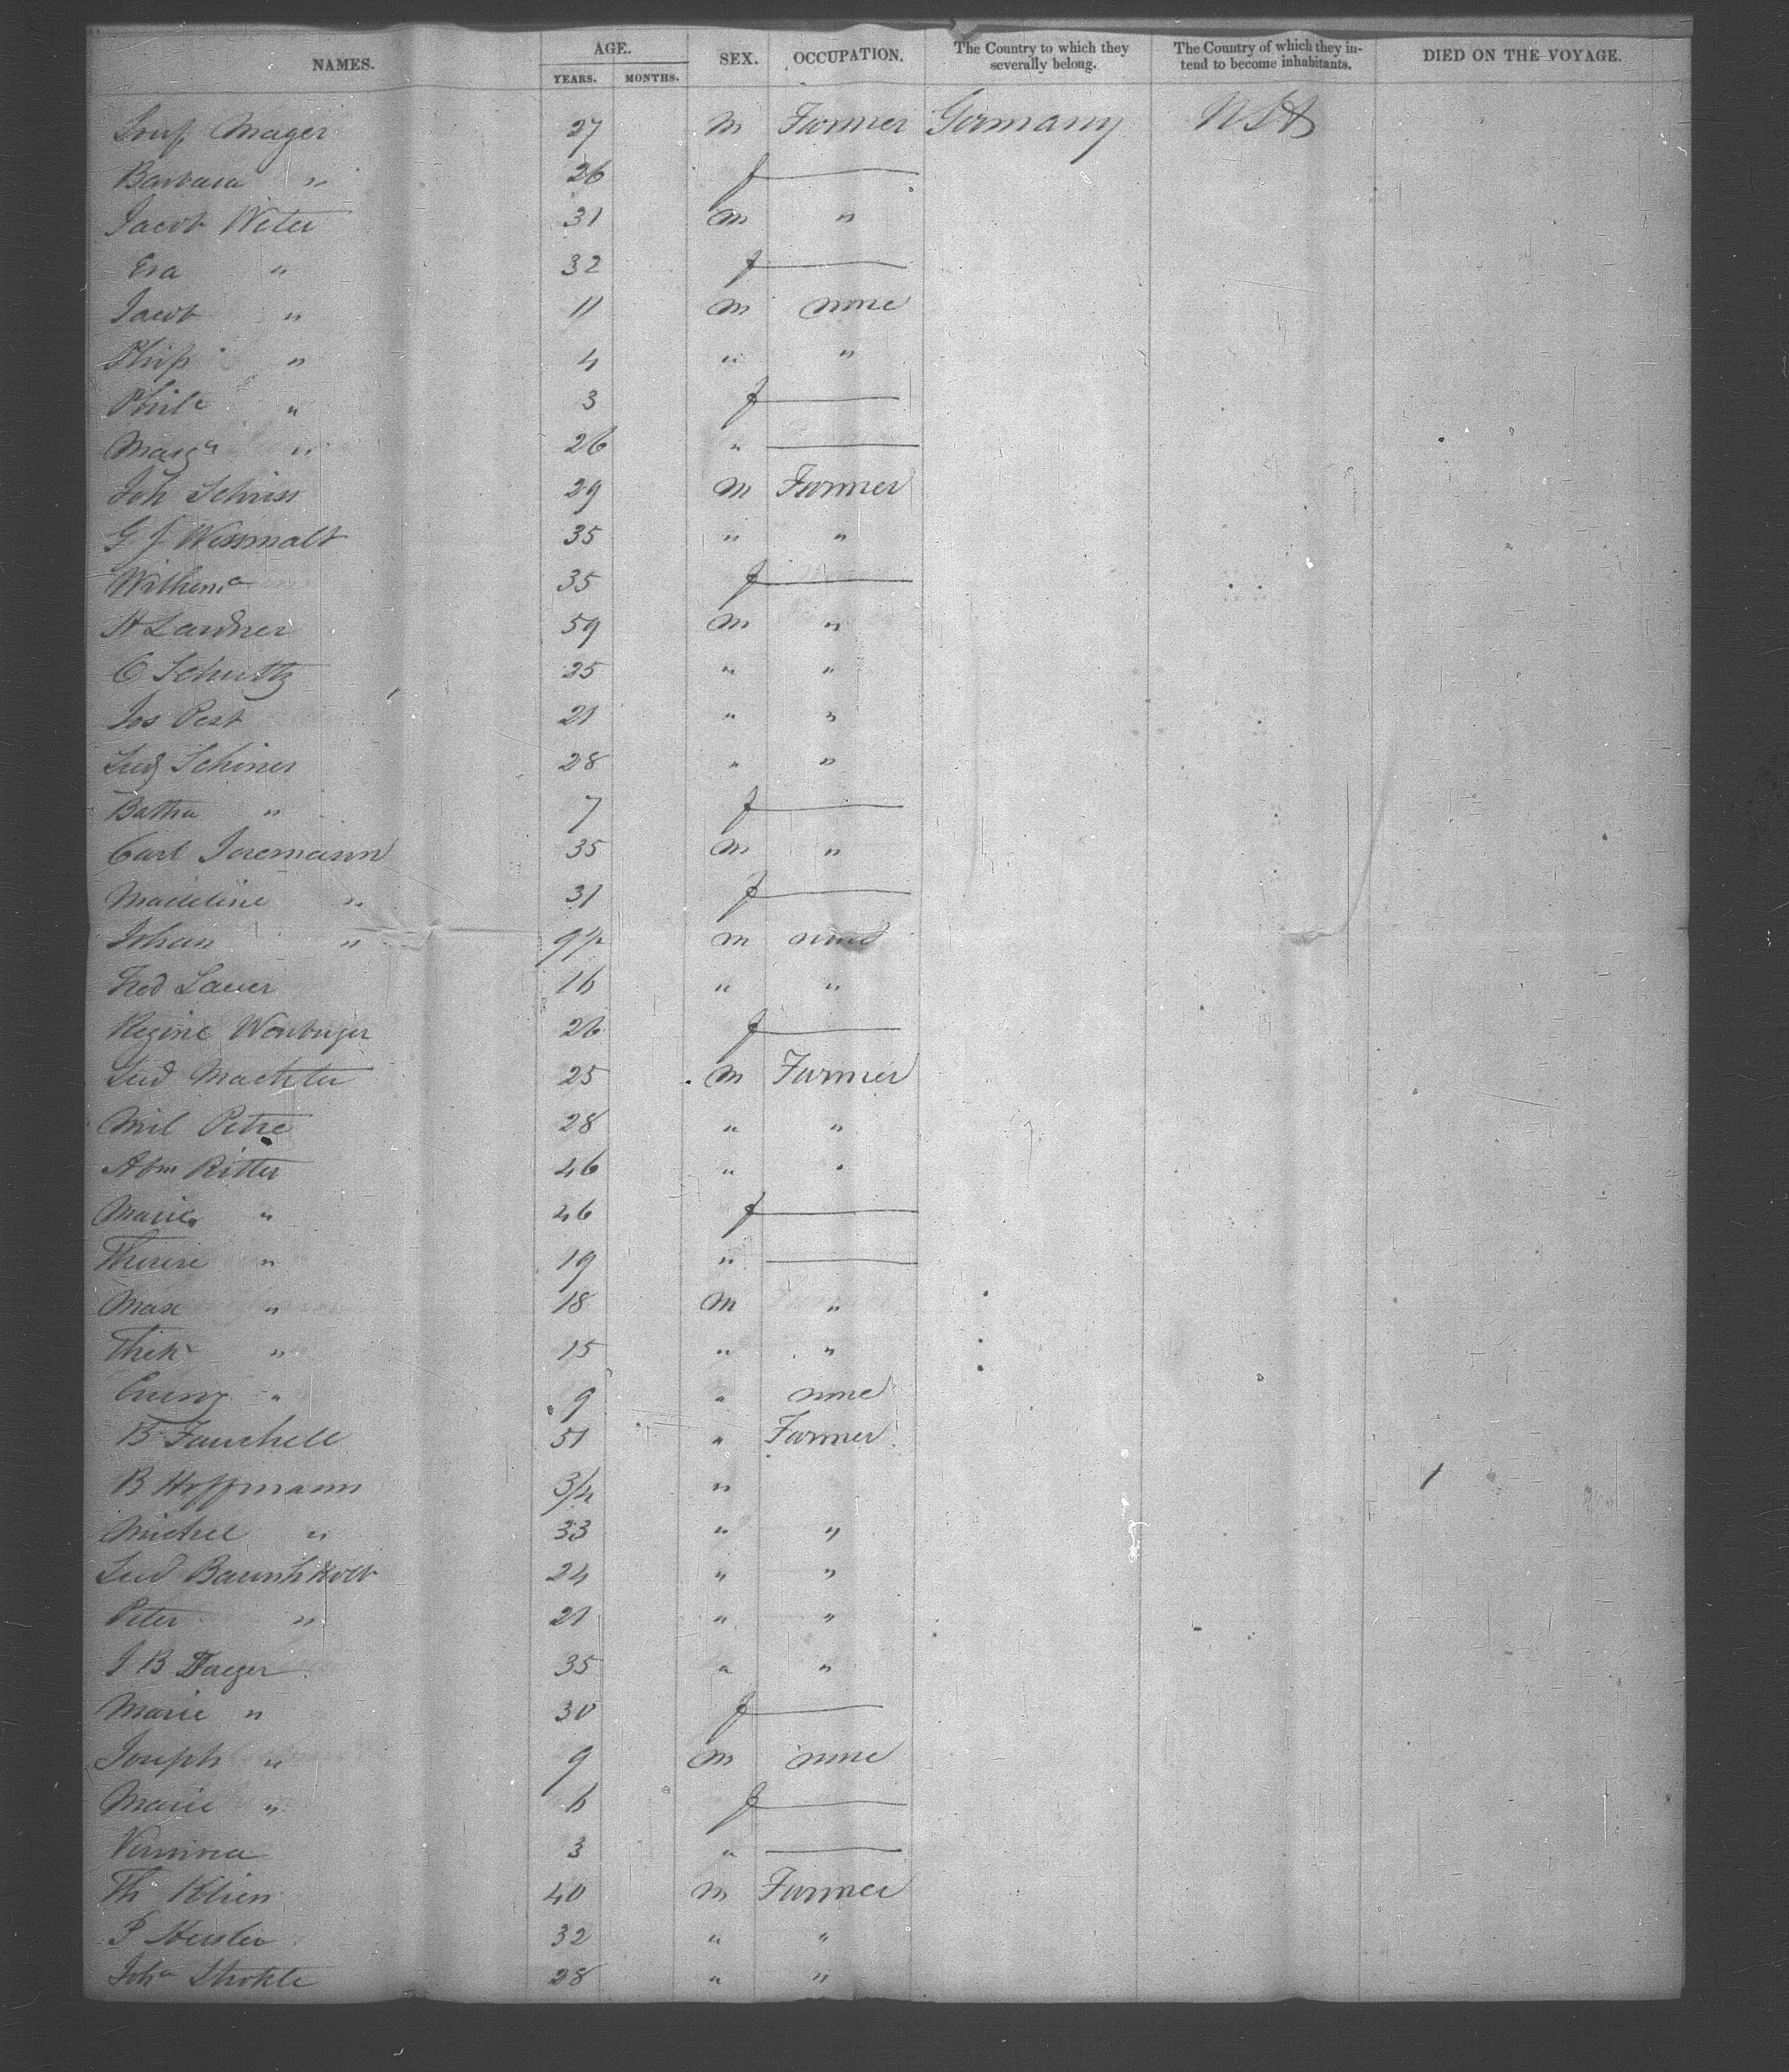 NAMES. AGE. YEARS. MONTHS. SEX. OCCUPATION. The Country to which they severally belong. The Country of which they intend to become inhabitants. DIED ON THE VOYAGE.
Mager 27 m Farmer Germany USA
Barbara " 26 f
Jacob Weter 31 m "
Eva " 32 f
Jacob " 11 m none
Phip " 4 " "
Phile " 3 f
Marga " 26 "
Joh Schriss 29 m Farmer
G J Wessmalt 35 " "
Wilhema 35 f
A Lardner 59 m "
C Schultz 25 " "
Jos Pest 21 " "
Ludg Schoner 28 " "
Batha " 7 f
Carl Joremann 35 m "
Madeline " 31 f
Johan " m none
Fred Lauer 16 " "
Regine 26 f
Lud Machter 25 m Farmer
Mil Petre 28 " "
Abm Ritter 46 " "
Marie " 46 f
Therese " 19 "
Max " 18 m "
" 15 " "
" 9 " none
B Fauchell 51 " Farmer
B Hoffmann 3/4 " /
Michel " 33 " "
Lud 24 " "
Peter " 21 " "
J B Daeger 35 " "
Marie " 30 f
Joseph " 9 m none
Marie " 6 f
3 "
Th Klien 40 m Farmer
P Hensler 32 " "
Joha Strohle 28 " "